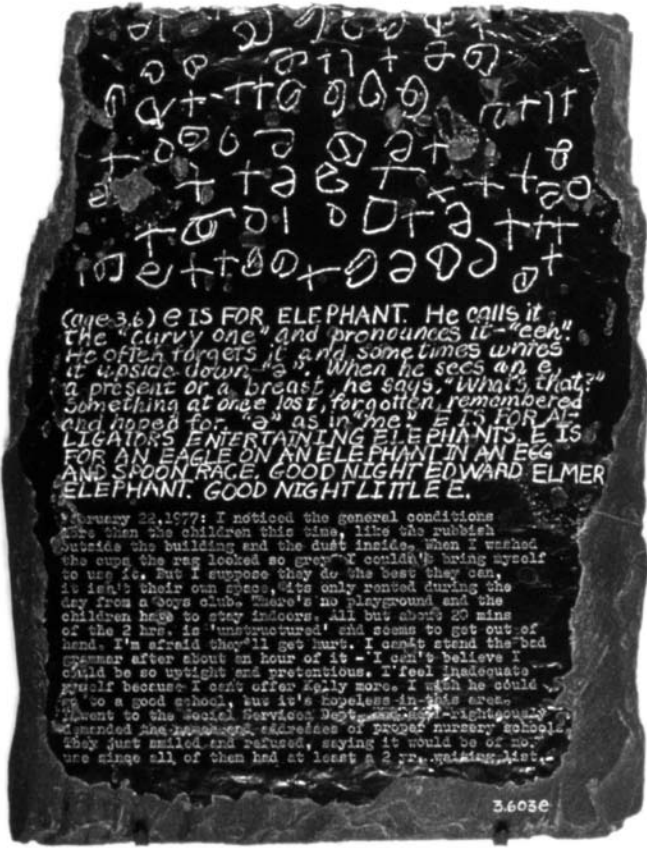 (age 3.6) e IS FOR ELEPHANT. He calls it
the "curvy one" and pronounces it - "eeh."
He often forgets it and sometimes writes
it upside down - "ə". When he sees an e,
a present or a breast, he says, "What's that?"
Something at once lost, forgotten, remembered
and hoped for. "ə" as in "me". E IS FOR AL-
LIGATORS ENTERTAINING ELEPHANTS. E IS
FOR AN EAGLE ON AN ELEPHANT IN AN EGG
AND SPOON RACE. GOOD NIGHT EDWARD ELMER
ELEPHANT. GOOD NIGHT LITTLE E.
February 22,1977: I noticed the general conditions
more than the children this time, like the rubbish
outside the building and the dust inside. When I washed
the cups the rag looked so grey I couldn't bring myself
to use it. But I suppose they do the best they can,
it isn't their own space, its only rented during the
day from a boys club. There's no playground and the
children have to stay indoors. All but about 20 mins
of the 2 hrs. is 'unstructured' and seems to get out of
hand. I'm afraid they'll get hurt. I can't stand the bad
grammar after about an hour of it - I can't believe I
could be so uptight and pretentious. I feel inadequate
myself because I cant offer Kelly more. I wish he could
go to a good school, but it's hopeless in this area.
I went to the Social Services Dept. and -righteously
demanded the addresses of proper nursery schools.
They just smiled and refused, saying it would be of no
use since all of them had at least a 2 yr. waiting list.
3.603e